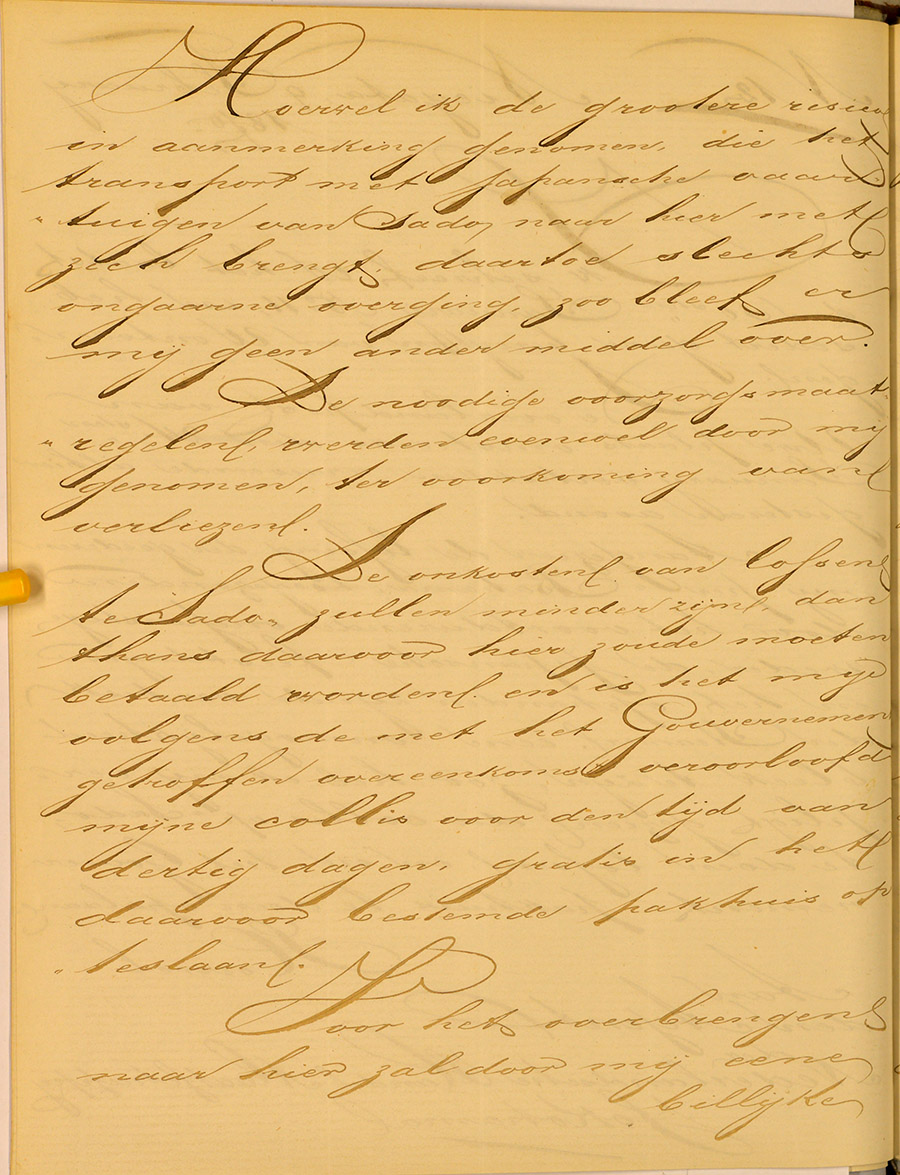 Hoewel ik de grootere risico
in aanmerking genomen, die het
transport met Japansche vaar-
"tuigen van Sado, naar hier met
zich brengt, daartoe slechts
ongaarne overging, zoo bleef er
mij geen ander middel over.
De noodige voorzorgsmaat-
"regelen, werden evenwel door mij
genomen, ter voorkoming van
verliezen.
De onkosten van lossen
te Sado, zullen minder zijn, dan
thans daarvoor hier zoude moeten
betaald worden. en is het mij
volgens de met het Gouvernemen
getroffen overeenkomst veroorloofd
mijne collis voor den tijd van
dertig dagen, gratis in het
daarvoor bestemde pakhuis op
"teslaan.
Voor het overbrengen
naar hier zal door mij eene
billijke